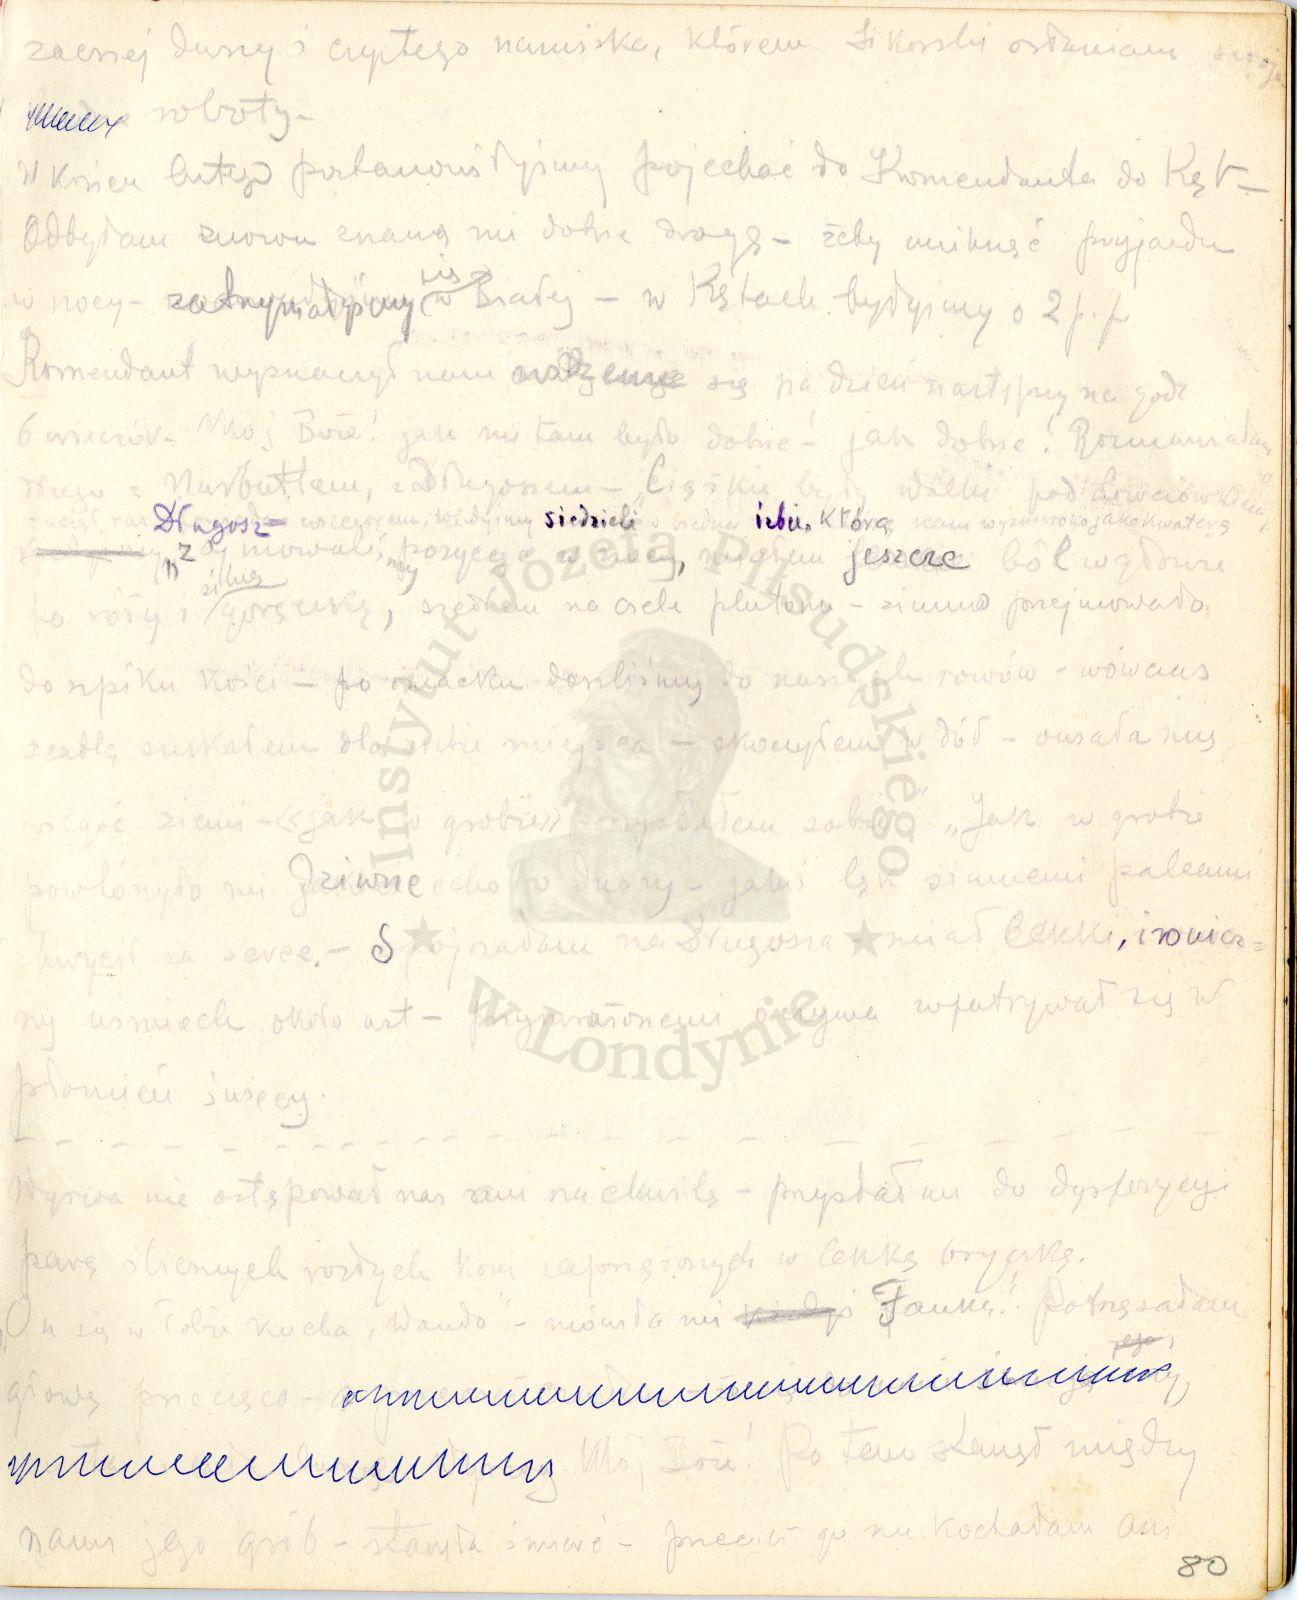 zacnej duszy i czystego nazwiska, którem Sikorski osłaniał swoje
roboty-
W końcu lutego postanowiłyśmy pojechać do Komendanta do Kęt-
Odbyłam znowu znaną mi dobrze drogę - żeby uniknąć przyjazdu
w nocy - zatrzymałyśmy się w Białej - w Kętach byłyśmy o 2 p.p
Komendant wyznaczył nam się na dzień następny na godz
6 wieczór - Mój Boże! jak mi tam było dobrze - jak dobrze! Rozmawiałam
długo z Narbuttem, z Długoszem - "Ciężkie były walki pod Łowczówkiem"
Długosz- wieczorem, kiedyśmy siedzieli w izbie, którą nam wyznaczono jako kwaterę
zajmowaliśmy pozycję w nocy, miałem jeszcze ból w gardle
po róży i silną gorączkę, szedłem na czele plutonu - zimno przejmowało
do szpiku kości - po omacku doszliśmy do naszych rowów - wówczas
szukałem dla siebie miejsca - skoczyłem w dół - owiała mię
wilgoć ziemi - «jak w grobie» pomyślałem sobie" "Jak w grobie"
powtórzyło mi dziwne echo w duszy - jakiś lęk zimnemi palcami
chwycił za serce. - Spojrzałam na Długosza - miał lekki, ironicz=
ny uśmiech około ust - oczyma wpatrywał się w
płomień świecy.
Wyrwa nie odstępował nas ani na chwilę - przysłał mi do dyspozycji
parę ślicznych rosłych koni zaprzężonych w lekką bryczkę.
"On się w Tobie kocha, Wando" - mówiła mi Janka! Potrząsałam
głową przecząco
Mój Boże! Potem stanął między
nami jego grób - stanęła śmierć - przecież go nie kochałam ani
80
Instytut Józefa Piłsudskiego
w Londynie